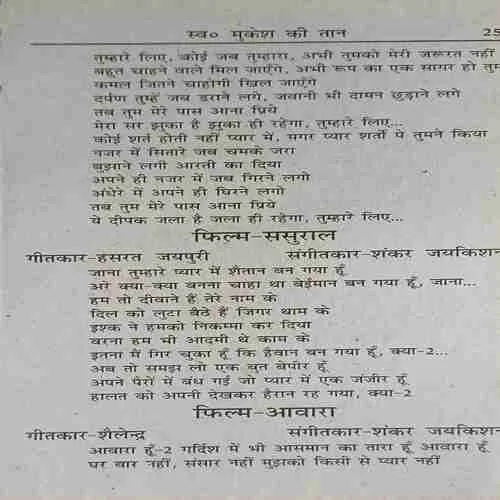 स्व० मुकेश की तान 25
तुम्हारे लिए, कोई जब तुम्हारा, अभी तुमको मेरी जरूरत नहीं
बहुत चाहने वाले मिल जाएँगे, अभी रूप का एक सागर हो तुम
कमल जितने चाहोगी खिल जाएँगे
दर्पण तुम्हें जब डराने लगे, जवानी भी दामन छुड़ाने लगे
तब तुम मेरे पास आना प्रिये
मेरा सर झुका है झुका ही रहेगा, तुम्हारे लिए...
कोई शर्त होती नहीं प्यार में, मगर प्यार शर्तों पे तुमने किया
नजर में सितारे जब चमके जरा
बुझाने लगी आरती का दिया
अपने ही नजर में जब गिरने लगो
अंधेरे में अपने ही घिरने लगो
तब तुम मेरे पास आना प्रिये
ये दीपक जला है जला ही रहेगा, तुम्हारे लिए...
फिल्म-ससुराल
गीतकार-हसरत जयपुरी संगीतकार-शंकर जयकिशन
जाना तुम्हारे प्यार में शैतान बन गया हूँ
अरे क्या-क्या बनना चाहा था बेईमान बन गया हूँ, जाना...
हम तो दीवाने हैं तेरे नाम के
दिल को लुटा बैठे हैं जिगर थाम के
इश्क ने हमको निकम्मा कर दिया
वरना हम भी आदमी थे काम के
इतना मैं गिर चुका हूँ कि हैवान बन गया हूँ, क्या-2...
अब तो समझ लो एक बुत बेपीर हूँ
अपने पैरों में बंध गई जो प्यार में एक जंजीर हूँ
हालत को अपनी देखकर हैरान रह गया, क्या-2
फिल्म-आवारा
गीतकार-शैलेन्द्र संगीतकार-शंकर जयकिशन
आवारा हूँ-2 गर्दिश में भी आसमान का तारा हूँ आवारा हूँ
घर बार नहीं, संसार नहीं मुझको किसी से प्यार नहीं